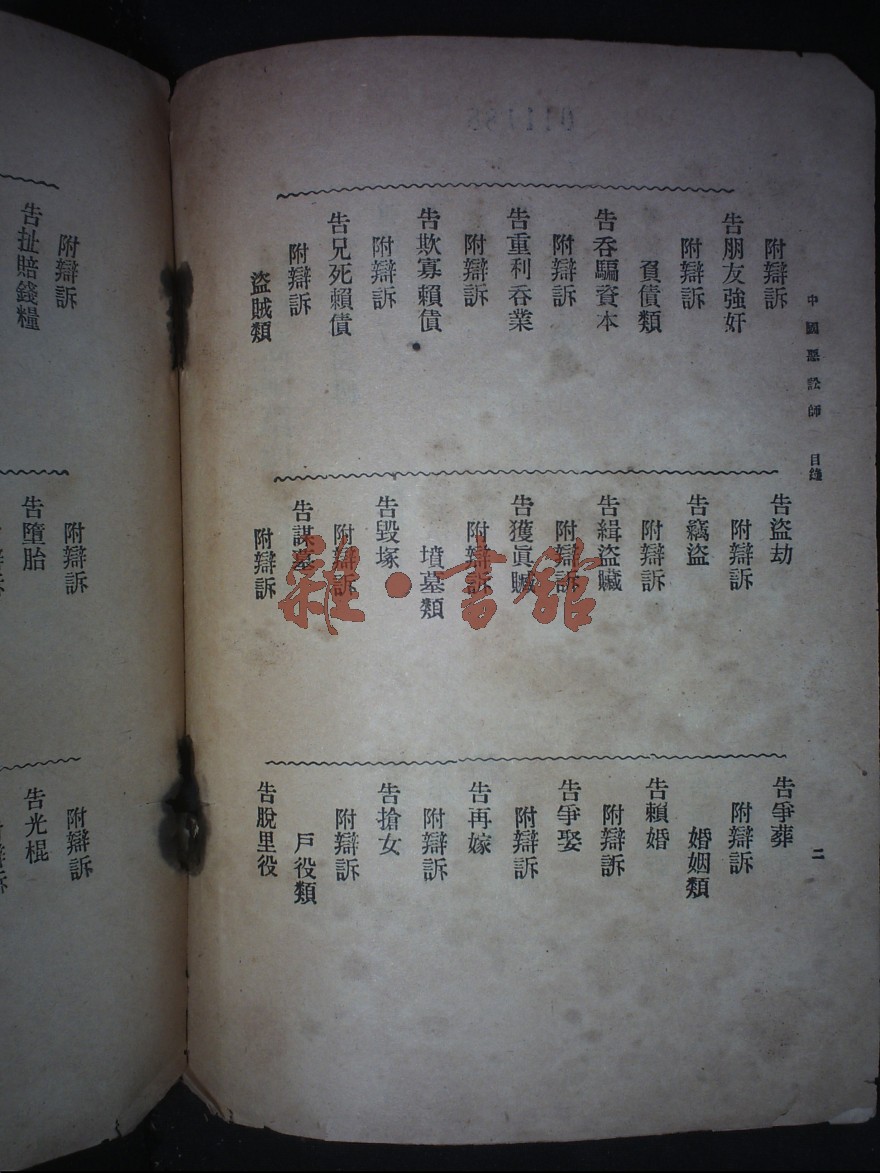 中國惡訟師 目錄
二
附辯訴
告朋友強奸
附辯訴
負債類
告吞騙資本
附辯訴
告重利吞業
附辯訴
告欺寡賴債
附辯訴
告兄死賴債
附辯訴
盜賊類
告盜劫
附辯訴
告竊盜
附辯訴
告緝盜贓
附辯訴
告獲眞贓
附辯訴
墳墓類
告毀塚
附辯訴
告謀墓
附辯訴
告爭葬
附辯訴
婚姻類
告賴婚
附辯訴
告爭娶
附辯訴
告再嫁
附辯訴
告搶女
附辯訴
戶役類
告脫里役
附辯訴
告扯賠錢糧
附辯訴
告墮胎
附辯訴
告光棍
雜·書館